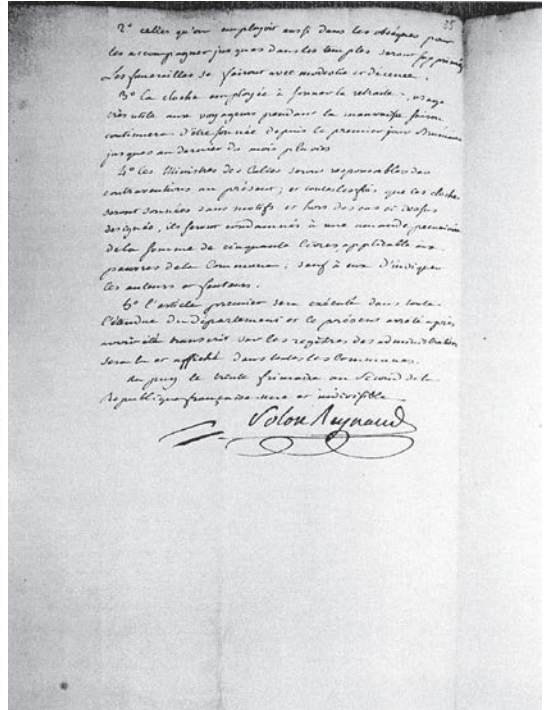 35
2° celles qu'on employoit aussi dans les obséques pour
les accompagner jusques dans les temples seront supprimées
Les funerailles se fairont avec modestie et decence.
3° la cloche employée à sonner la retraite, usage
très utile aux voyageurs pendant la mauvaise saison
continuera d'être sonnée depuis le premier jour Brumaire
jusques au dernier du mois pluvios
4° les Ministres des Cultes seront responsables des
contraventions au présent; et toutes les fois que les cloches
seront sonnées sans motifs et hors des cas ci dessus
designés, ils seront condamnés à une amende pecuniaire
de la somme de cinquante livres applicable aux
pauvres de la Commune; sauf à eux d'indiquer
les auteurs et fauteurs.
l'article premier sera exécuté dans toute
l'étendue du département et le présent arreté après
avoir été transcrit sur les registres des administrations
sera lu et affiché dans toutes les Communes.
au puy le trente frimaire an Second de la
Republique française une et indivisible
Solon Reynaud